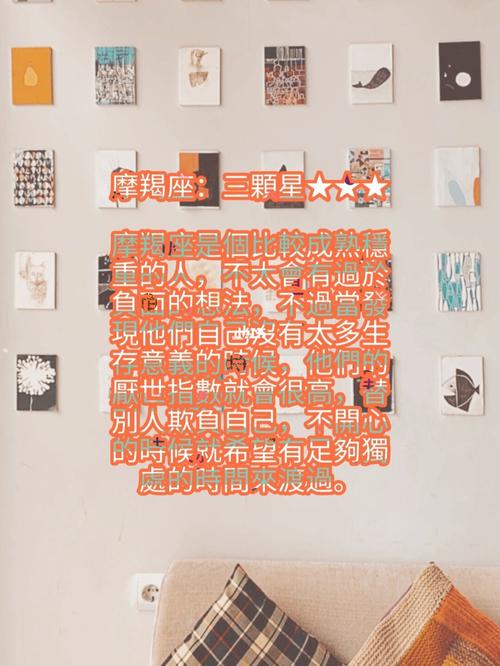 摩羯座：三顆星★★★
摩羯座是個比較成熟穩
重的人，不太會有過於
負面的想法，不過當發
現他們自己沒有太多生
存意義的時候，他們的
厭世指數就會很高，替
別人欺負自己，不開心
的時候就希望有足夠獨
處的時間來渡過。